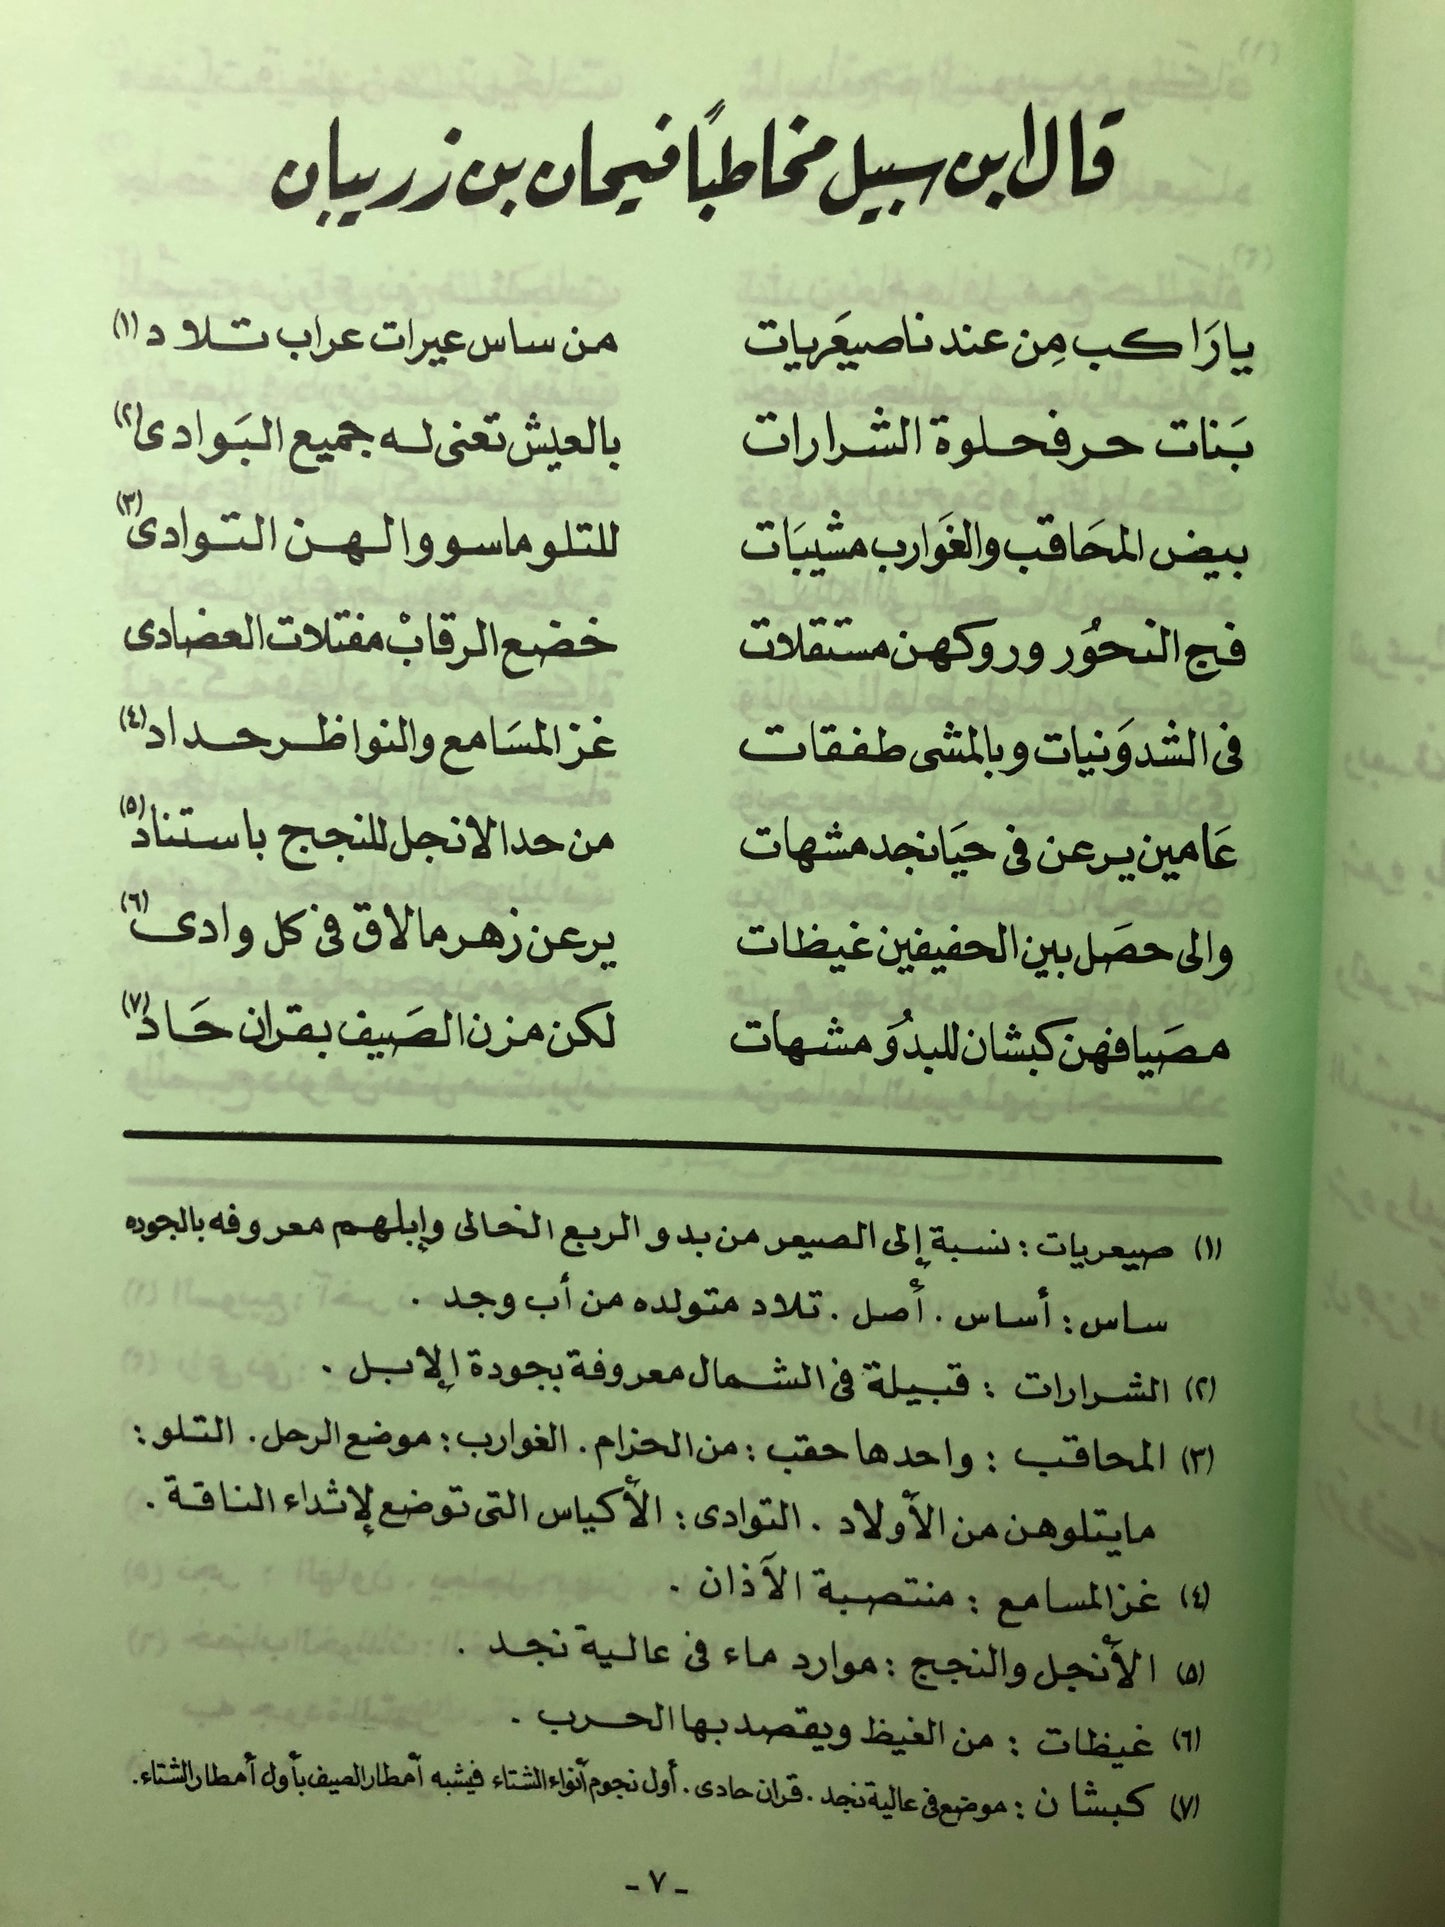 قال ابن سبيل مخاطبًا فيحان بن زريبان
يارَاكب مِن عند ناصيعَريات من ساس عيرات عراب تلاد (١)
بَنات حر فحلوة الشرارات بالعيش تعنى له جميع البَوادى (٢)
بيض المحَاقب والغَوارب مشيبَات للتلو ماسووا لهن التوادى (٣)
فج النحوُر وروكهن مستقلات خضع الرقابْ مفتلات العضادى
فى الشدوَنيات وبالمشى طفقات غز المسَامع والنواظر حداد (٤)
عَامين يرعن فى حيَا نجد مشهات من حد الانجل للنجج باستناد (٥)
والى حصَل بين الحفيفين غيظات يرعن زهر مالاق فى كل وادى (٦)
مصَيافهن كبشان للبدوُ مشهات لكن مزن الصَيف بقران حَاد (٧)
(١) صيعريات : نسبة إلى الصيعر من بدو الربع الخالى وإبلهم معروفه بالجوده
ساس : أساس . أصل . تلاد متولده من أب وجد .
(٢) الشرارات : قبيلة فى الشمال معروفة بجودة الإبل .
(٣) المحاقب : واحدها حقب : من الحزام . الغوارب : موضع الرحل . التلو :
مايتلوهن من الأولاد . التوادى : الأكياس التى توضع لإثداء الناقة .
(٤) غز المسامع : منتصبة الآذان .
(٥) الأنجل والنجج : موارد ماء فى عالية نجد .
(٦) غيظات : من الغيظ ويقصد بها الحرب .
(٧) كبشان : موضع فى عالية نجد . قران حادى . أول نجوم أنواء الشتاء فيشبه أمطار الصيف بأول أمطار الشتاء.
- ٧ -